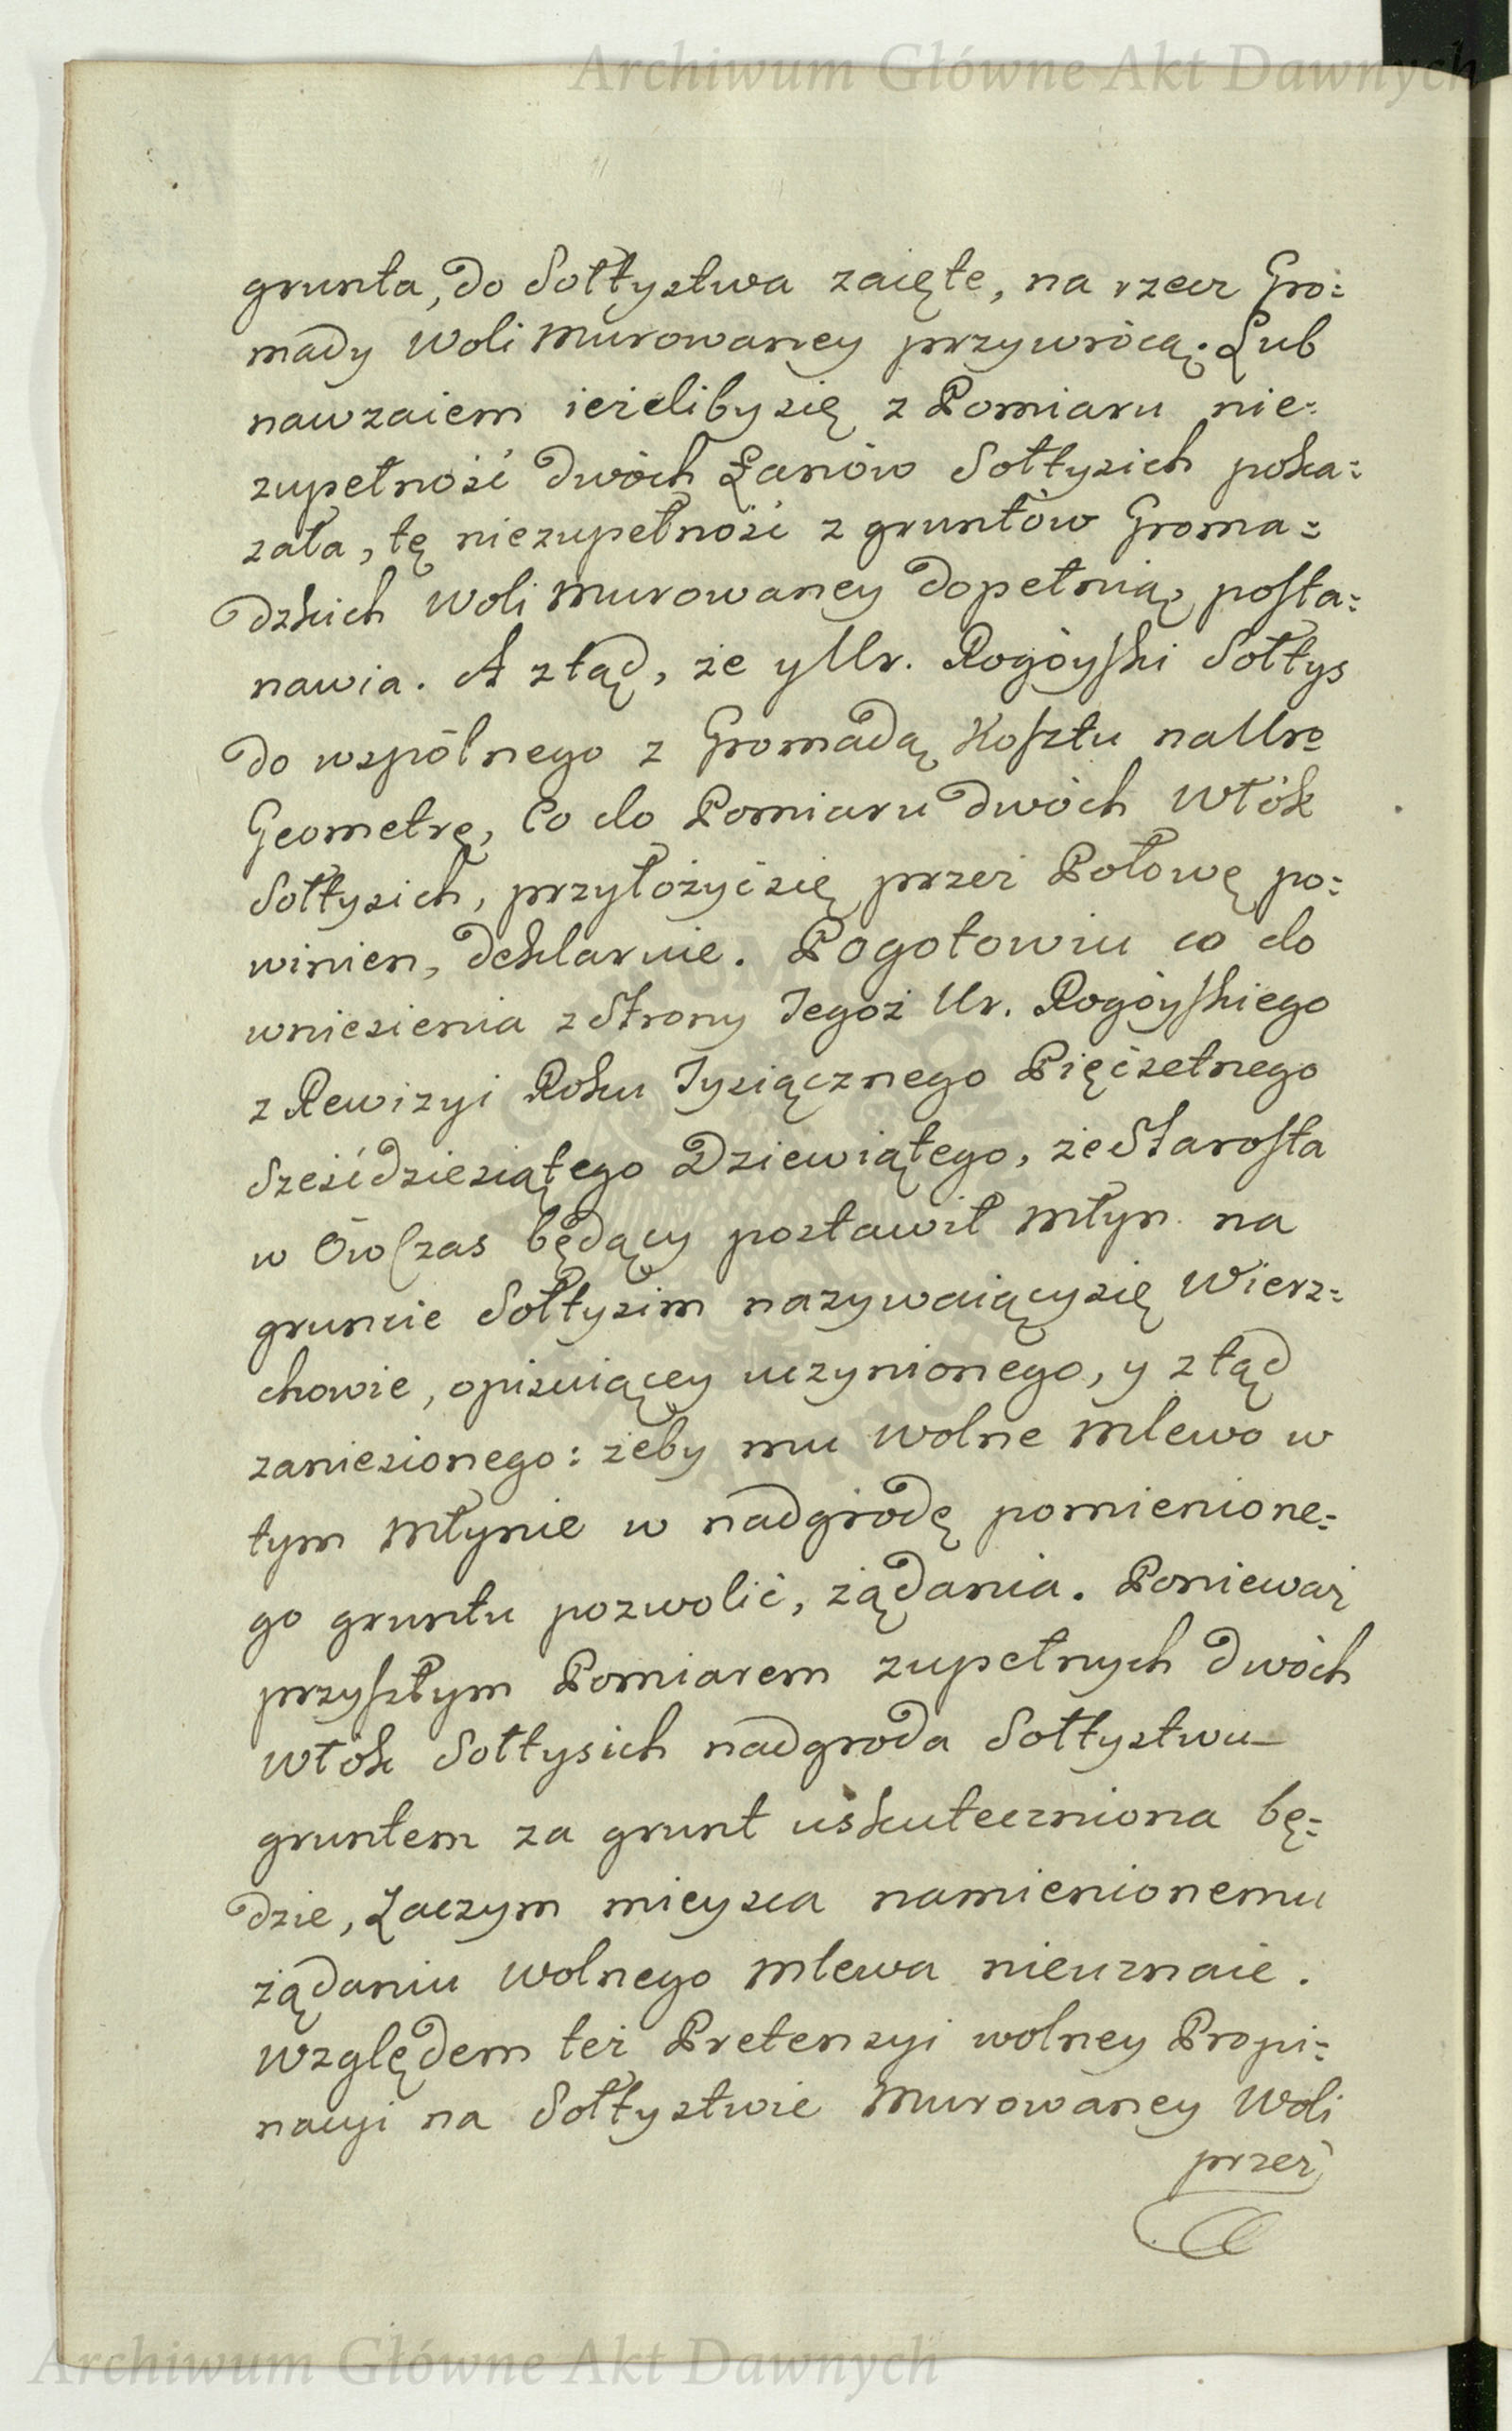 Archiwum Główne Akt Dawnych
grunta, do Sołtystwa zaięte, na rzecz Gro=
mady Woli Murowaney przywrócą. Lub
nawzaiem ieżeliby się z Pomiaru nie=
zupełność dwóch Łanów Sołtysich poka=
zała, tę niezupełność z gruntów Groma=
dzkich Woli Murowaney dopełnią, posta=
nawia. A ztąd, że y Ur. Rogóyski Sołtys
do wspólnego z Gromadą Kosztu na Uro
Geometrę, Co do Pomiaru dwóch Włók
Sołtysich, przyłożyć się przez Połowę po=
winien, deklaruie. Pogotowiu co do
wniesienia z Strony Jegoż Ur. Rogóyskiego
z Rewizyi Roku Tysiącznego Pięćsetnego
Sześćdziesiątego Dziewiątego, że Starosta
w Ówczas będący postawił Młyn na
gruncie Sołtysim nazywaiącysię Wierz=
chowie, opisuiącey uczynionego, y ztąd
zaniesionego: żeby mu wolne Mlewo w
tym Młynie w nadgrodę pomienione=
go gruntu pozwolić, żądania. Ponieważ
przyszłym Pomiarem zupełnych dwóch
Włók Sołtysich nadgroda Sołtystwu
gruntem za grunt uskuteczniona bę=
dzie, Zaczym mieysca namienionemu
żądaniu wolnego Mlewa nieuznaie.
Względem też Pretensyi wolney Propi=
nacyi na Sołtystwie Murowaney Woli
przez
Archiwum Główne Akt Dawnych